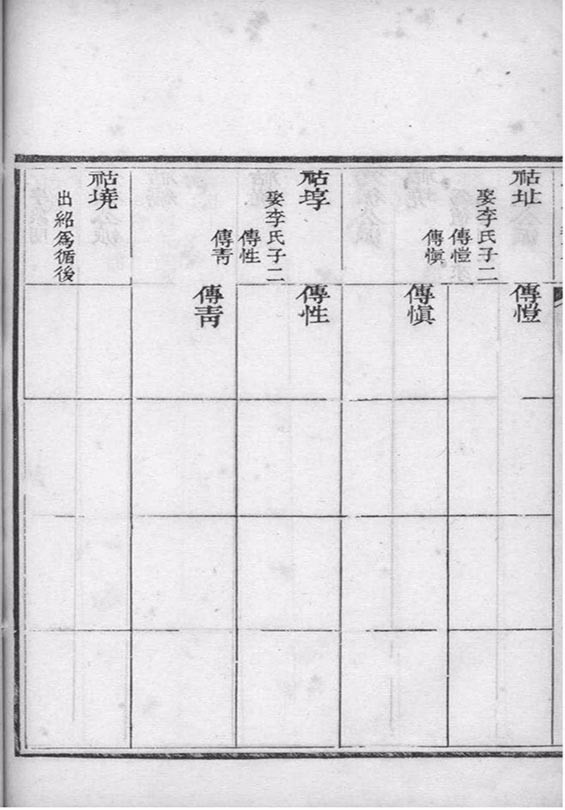 祜址
娶李氏子二
傳愷
傳愼
祜埻
娶李氏子二
傳性
傳青
祜墝
出紹爲循後
傳愷
傳愼
傳性
傳青